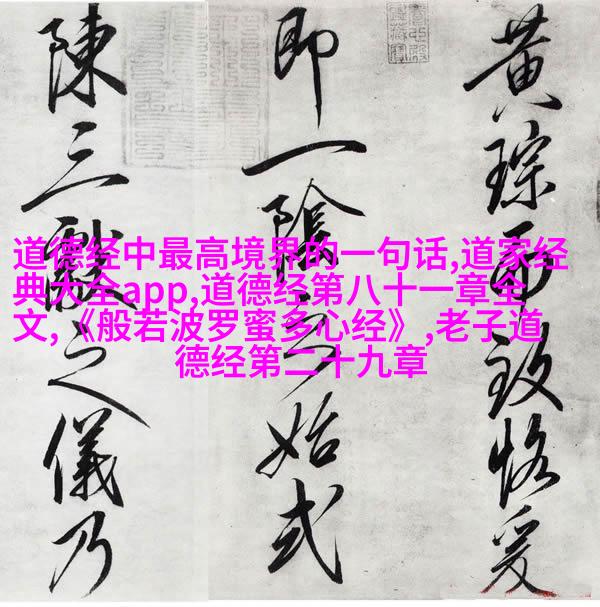 黄琮而致恪爰
即一陰始式
陳三獻之儀乃
道德经中最高境界的一句话,道家经
典大全app,道德经第八十一章全
文,《般若波罗蜜多心经》,老子道
德经第二十九章